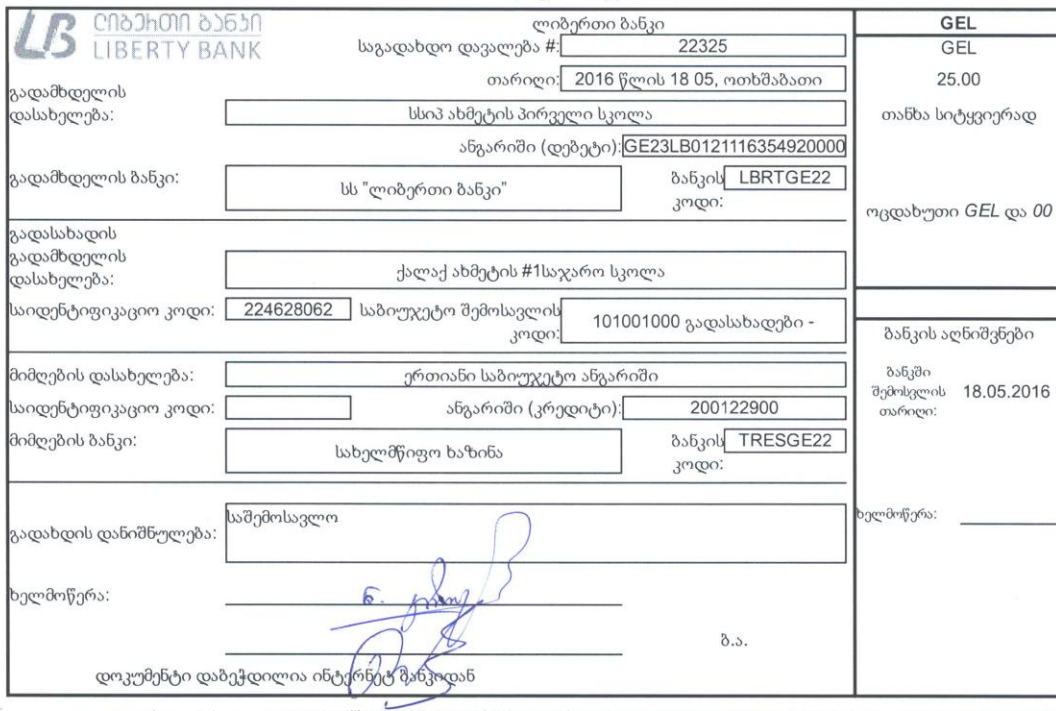 ლიბერთი ბანკი
LIBERTY BANK
ლიბერთი ბანკი
საგადახდო დავალება #: 22325
თარიღი: 2016 წლის 18 05, ოთხშაბათი
გადამხდელის
დასახელება: სსიპ ახმეტის პირველი სკოლა
ანგარიში (დებეტი): GE23LB0121116354920000
გადამხდელის ბანკი: სს "ლიბერთი ბანკი" ბანკის LBRTGE22
კოდი:
გადასახადის
გადამხდელის
დასახელება: ქალაქ ახმეტის #1საჯარო სკოლა
საიდენტიფიკაციო კოდი: 224628062 საბიუჯეტო შემოსავლის
კოდი: 101001000 გადასახადები -
მიმღების დასახელება: ერთიანი საბიუჯეტო ანგარიში
საიდენტიფიკაციო კოდი: ანგარიში (კრედიტი): 200122900
მიმღების ბანკი: სახელმწიფო ხაზინა ბანკის TRESGE22
კოდი:
გადახდის დანიშნულება: საშემოსავლო
ხელმოწერა:
ბ.ა.
დოკუმენტი დაბეჭდილია ინტერნეტ ბანკიდან
GEL
GEL
25.00
თანხა სიტყვიერად
ოცდახუთი GEL და 00
ბანკის აღნიშვნები
ბანკში
შემოსვლის 18.05.2016
თარიღი:
ხელმოწერა: